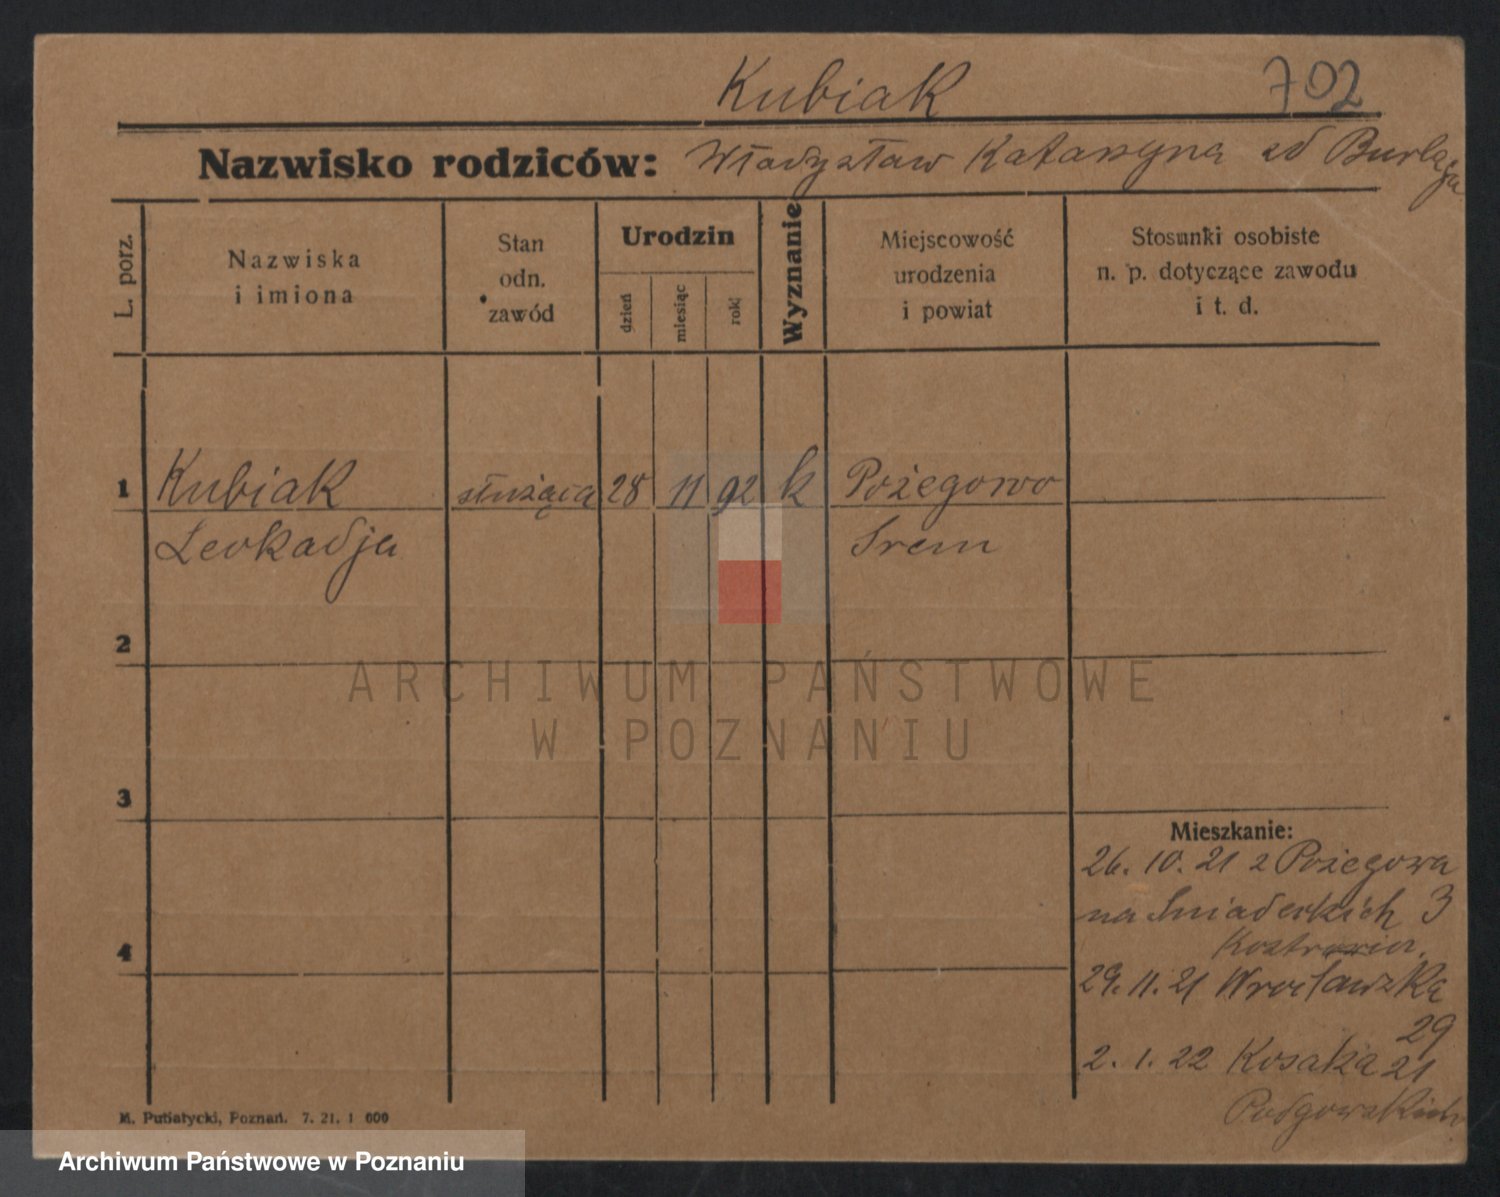 Kubiak 702
Nazwisko rodziców: Władysław Katarzyna zd Burlaga
L. porz.
Nazwiska
i imiona
Stan
odn.
zawód
Urodzin
dzień
miesiąc
rok
Wyznanie
Miejscowość
urodzenia
i powiat
Stosunki osobiste
n. p. dotyczące zawodu
i t. d.
1 Kubiak służąca 28 11 92 k Pożegowo
Leokadja Śrem
2
ARCHIWUM PAŃSTWOWE
W POZNANIU
3
Mieszkanie:
26. 10. 21 z Pożegowa
na Śniadeckich 3
4
29. 11. 21 Wrocławska
29
2. 1. 22 Kosaka 21
M. Putiatycki, Poznań. 7. 21. 1 600
Archiwum Państwowe w Poznaniu